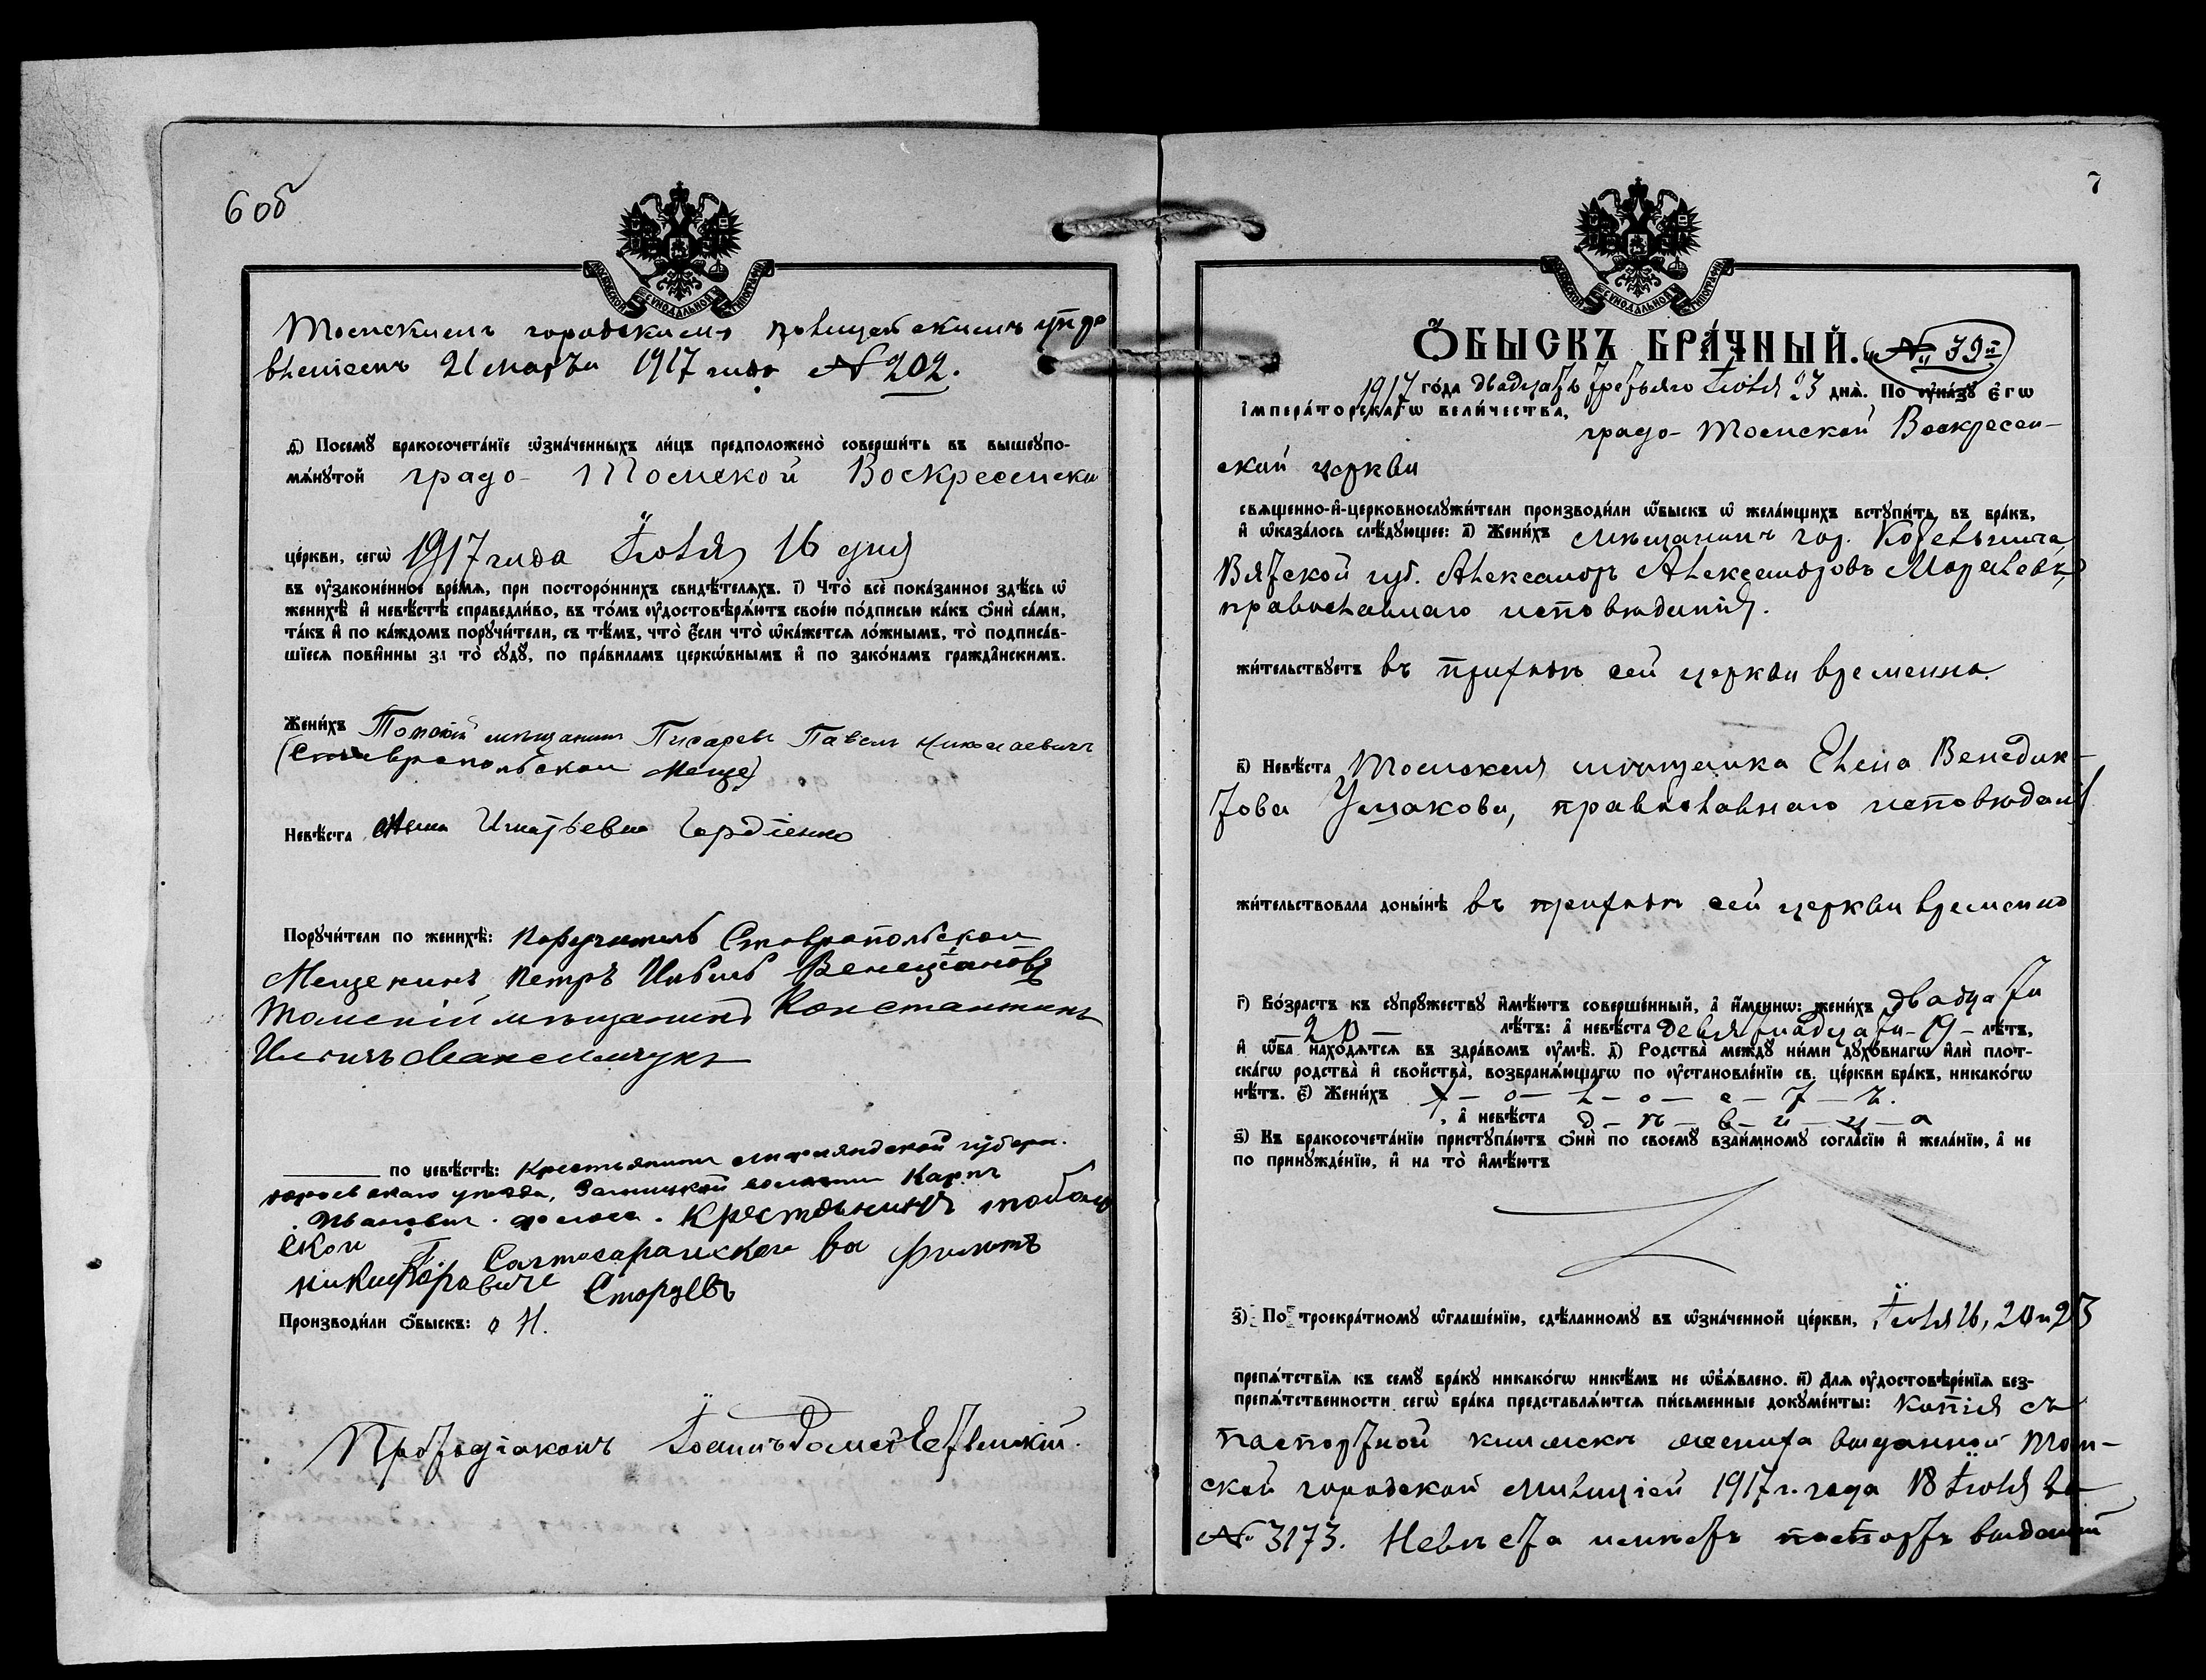 6 об
МОСКОВСКОЙ СѴНОДАЛЬНОЙ ТИПОГРАФІИ
Томскимъ городскимъ полицейскимъ упра
вленіемъ 21 марта 1917 года № 202.
д҃) Посемꙋ бракосочета́нїе ѡ҆зна́ченныхъ ли́цъ предположено̀ соверши́ть въ вышеꙋпо-
мѧ́нꙋтой градо- Томской Воскресенско
це́ркви, сегѡ̀ 1917 года Іюля 16 дня
въ ᲂу҆зако́ненное вре́мѧ, при посторо́ннихъ свидѣ́телѧхъ. і҃) Что̀ всѐ пока́занное здѣ́сь ѡ҆
женихѣ̀ и҆ невѣ́стѣ справедли́во, въ то́мъ ᲂу҆достовѣрѧ́ютъ свое́ю по́дписью ка́къ ѻ҆нѝ са́ми,
та́къ и҆ по ка́ждомъ порꙋчи́тели, съ тѣ́мъ, что̀ є҆́сли что̀ ѡ҆ка́жетсѧ ло́жнымъ, то̀ подписа́в-
шїесѧ пови́нны за то̀ сꙋдꙋ̀, по пра́виламъ церкѡ́внымъ и҆ по зако́намъ гражда́нскимъ.
Жени́хъ Томскій мѣщанинъ Писаревъ Павелъ Николаевичъ
(Ставропольской Меще)
Невѣ́ста Анна Игнатьевна Гордіенко
Порꙋчи́тели по женихѣ̀: Поручитель Ставропольской
Мещенинъ Петръ
Томскій мѣщанинъ Константинъ
Ильичъ
по невѣ́стѣ: Крестьянинъ Лифляндской губерн.
уезда, волости Карлъ
Ивановичъ Крестьянинъ тобол
ской Филатъ
Никифоровиче
Производи́ли ѻ҆́быскъ: о Н.
Протодіаконъ Іоаннъ
7
МОСКОВСКОЙ СѴНОДАЛЬНОЙ ТИПОГРАФІИ
Ѻ҆́БЫСКЪ БРА́ЧНЫЙ. № 39й
1917 го́да двадцать третьяго Іюля 23 днѧ̀. По ᲂу҆ка́зꙋ є҆гѡ̀
і҆мпера́торскагѡ вели́чества,
градо- Томской Воскресен-
ской церкви
свѧщенно-и҆-церковнослꙋжи́тели производи́ли ѡ҆́быскъ ѡ҆ жела́ющихъ встꙋпи́ть въ бра́къ,
и҆ ѡ҆каза́лось слѣ́дꙋющее: а҃) Жени́хъ мѣщанинъ гор. Котельнича
Вятской губ. Александръ Александровъ
православнаго исповѣданія.
жи́тельствꙋетъ въ приходѣ сей церкви временно.
в҃) Невѣ́ста Томская мѣщанка Елена Венедик-
това Ушакова, православнаго исповѣданія
жи́тельствовала доны́нѣ въ приходѣ сей церкви временно
г҃) Во́зрастъ къ сꙋпрꙋ́жествꙋ и҆мѣ́ютъ соверше́нный, а҆ и҆́меннѡ: жени́хъ двадцати
— 20 — лѣ́тъ: а҆ невѣ́ста девятнадцати - 19 - лѣ́тъ,
и҆ ѡ҆́ба нахо́дѧтсѧ въ здра́вомъ ᲂу҆мѣ̀. д҃) Родства̀ междꙋ̀ ни́ми дꙋхо́внагѡ и҆лѝ плот-
ска́гѡ родства̀ и҆ сво́йства̀, возбранѧ́ющагѡ по ᲂу҆становле́нїю св. це́ркви бра́къ, никако́гѡ
нѣ́тъ. є҃) Жени́хъ х — о — л — о — с — т — ъ.
, а҆ невѣ́ста д — ѣ — в — и — ц — а
ѕ҃) Къ бракосочета́нїю пристꙋпа́ютъ ѻ҆нѝ по своемꙋ̀ взаи́мномꙋ согла́сїю и҆ жела́нїю, а҆ не
по принꙋжде́нїю, и҆ на то̀ и҆мѣ́ютъ
з҃) По троекра́тномꙋ ѡ҆глаше́нїю, сдѣ́ланномꙋ въ ѡ҆зна́ченной це́ркви, Іюля 16, 20 и 23
препѧ́тствїѧ къ семꙋ̀ бра́кꙋ никако́гѡ никѣ́мъ не ѡ҆б̾ѧ́влено. и҃) Длѧ ᲂу҆достовѣре́нїѧ без-
препѧ́тственности сегѡ̀ бра́ка представлѧ́ютсѧ пи́сьменные докꙋме́нты: Копія съ
паспортной книжки жениха выданной Том-
ской городской милиціей 1917 г. года 18 Іюля за
№ 3173. Невѣста имѣетъ паспортъ выданный